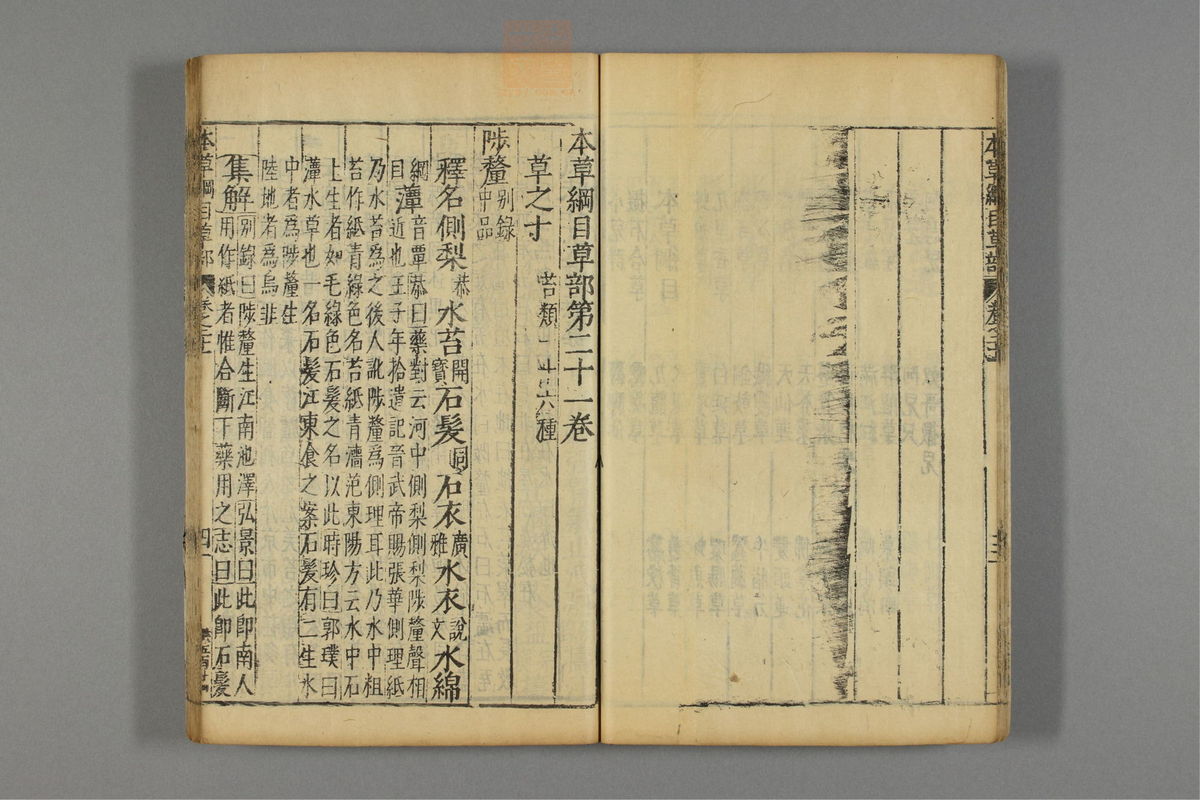 本草綱目草部
本草綱目草部第二十一卷
草之十 苔類一十六種
陟釐 别錄中品
釋名側梨 恭 水苔 開寳 石髮 同 石衣 廣雅 水衣 說文 水綿
綱目 藫 音覃恭曰藥對云河中側梨側梨陟釐聲相
近也王子年拾遺記晉武帝賜張華側理紙
乃水苔為之後人訛陟釐為側理耳此乃水中粗
苔作紙青綠色名苔紙青濇范東陽方云水中石
上生者如毛綠色石髮之名以此時珍曰郭璞曰
藫水草也一名石髮江東食之案石髮有二生水
中者爲陟釐生
陸地者爲烏韭
集解 别錄曰陟釐生江南池澤弘景曰此即南人
用作紙者惟合斷下藥用之志曰此即石髮
本草綱目草部